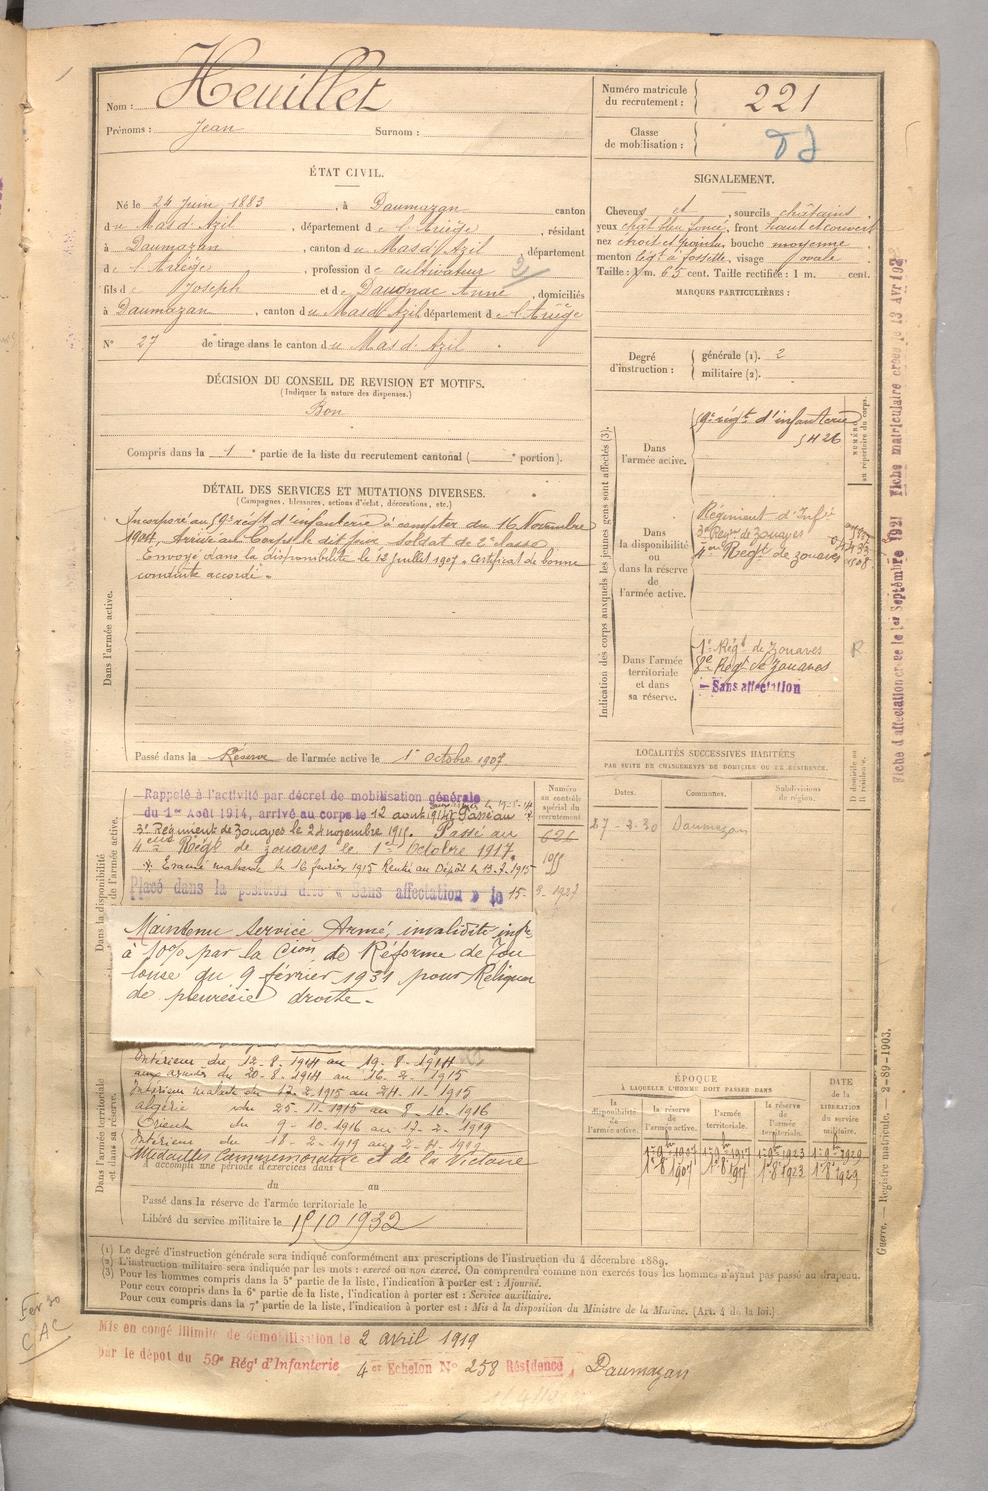 Nom : Heuillet
Prénoms : Jean Surnom :
Numéro matricule du recrutement : 221
Classe de mobilisation :
ÉTAT CIVIL.
Né le 24 Juin 1883, à Daumazan canton
du Mas d'Azil, département de l'Ariège, résidant
à Daumazan, canton du Mas d'Azil, département
de l'Ariège, profession de cultivateur
2
fils de Joseph et de Daugnac Anne, domiciliés
à Daumazan, canton du Mas d'Azil département de l'Ariège
N° 27 de tirage dans le canton du Mas d'Azil.
SIGNALEMENT.
Cheveux et, sourcils châtains
yeux chât bleu foncé, front haut et couvert
nez droit et pointu, bouche moyenne
menton lég' à fossette, visage ovale
Taille : 1 m. 65 cent. Taille rectifiée : 1 m. cent.
MARQUES PARTICULIÈRES :
Degré d'instruction : générale (1). 2
militaire (2).
DÉCISION DU CONSEIL DE REVISION ET MOTIFS.
(Indiquer la nature des dispenses.)
Bon
Compris dans la 1e partie de la liste du recrutement cantonal ( e portion).
DÉTAIL DES SERVICES ET MUTATIONS DIVERSES.
(Campagnes, blessures, actions d'éclat, décorations, etc.)
Dans l'armée active.
Incorporé au 59e régt d'infanterie à compter du 16 Novembre
1904, Arrivé au Corps le dit jour soldat de 2e classe
Envoyé dans la disponibilité le 12 juillet 1907. Certificat de bonne
conduite accordé.
Passé dans la Réserve de l'armée active le 1er octobre 1907.
Indication des corps auxquels les jeunes gens sont affectés (3).
NUMÉRO au répertoire du corps.
Dans l'armée active.
59e régt d'infanterie
5426
Dans la disponibilité ou dans la réserve de l'armée active.
Régiment d'Infie
3e Régt de Zouaves
4eme Régt de zouaves
Dans l'armée territoriale et dans sa réserve.
1e Régt de Zouaves
8e Régt de Zouaves
Sans affectation
R
LOCALITÉS SUCCESSIVES HABITÉES
PAR SUITE DE CHANGEMENTS DE DOMICILE OU DE RÉSIDENCE.
Dates. Communes. Subdivisions de région. D domicile ou R résidence.
27-2-30 Daumazan
Dans la disponibilité
Numéro au contrôle spécial du recrutement
621
Rappelé à l'activité par décret de mobilisation générale
du 1er Août 1914, arrivé au corps le 12 aout 1914 Passé au
3e Régiment de zouaves le 24 novembre 1915. Passé au
4eme Régt de zouaves le 1er Octobre 1917.
* Evacué malade le 16 février 1915 Rentré au Dépôt le 13.7.1915
Placé dans la position dite « Sans affectation » le 15-
Maintenu Service Armé, invalidité infre
à 10% par la Cion de Réforme de Tou
louse du 9 février 1931 pour Reliquat
de pleurésie droite.
Dans l'armée territoriale et dans sa réserve.
Intérieur du 12-8-1914 au 19-8-1914
aux armées du 20-8-1914 au 16-2-1915
Intérieur malade du 17-2-1915 au 24-11-1915
Algérie du 25-11-1915 au 8-10-1916
Orient du 9-10-1916 au 17-2-1919
Intérieur du 18-2-1919 au 2-4-1919
Médailles Commémorative et de la Victoire
A accompli une période d'exercices dans
du au
Passé dans la réserve de l'armée territoriale le
Libéré du service militaire le 15 10 1932
ÉPOQUE
À LAQUELLE L'HOMME DOIT PASSER DANS
la disponibilité de l'armée active.
la réserve de l'armée active.
l'armée territoriale.
la réserve de l'armée territoriale.
DATE de la LIBÉRATION du service militaire.
1er 9bre 1907 1er 9bre 1917 1er 9bre 1923 1er 9bre 1929
1er 8 1907 1er 8 1917 1er 8 1923 1er 8 1929
(1) Le degré d'instruction générale sera indiqué conformément aux prescriptions de l'instruction du 4 décembre 1889.
(2) L'instruction militaire sera indiquée par les mots : exercé ou non exercé. On comprendra comme non exercés tous les hommes n'ayant pas passé au drapeau.
(3) Pour les hommes compris dans la 5e partie de la liste, l'indication à porter est : Ajourné.
Pour ceux compris dans la 6e partie de la liste, l'indication à porter est : Service auxiliaire.
Pour ceux compris dans la 7e partie de la liste, l'indication à porter est : Mis à la disposition du Ministre de la Marine. (Art. 4 de la loi.)
Mis en congé illimité de démobilisation le 2 avril 1919
par le dépôt du 59e Régt d'Infanterie 4er Echelon N° 258 Résidence Daumazan
Fer 30
CAC
Fiche d'affectation créée le 1er Septembre 1921 Fiche matriculaire créée le 13 Avr
Guerre. — Registre matricule. — 3-89-1903.